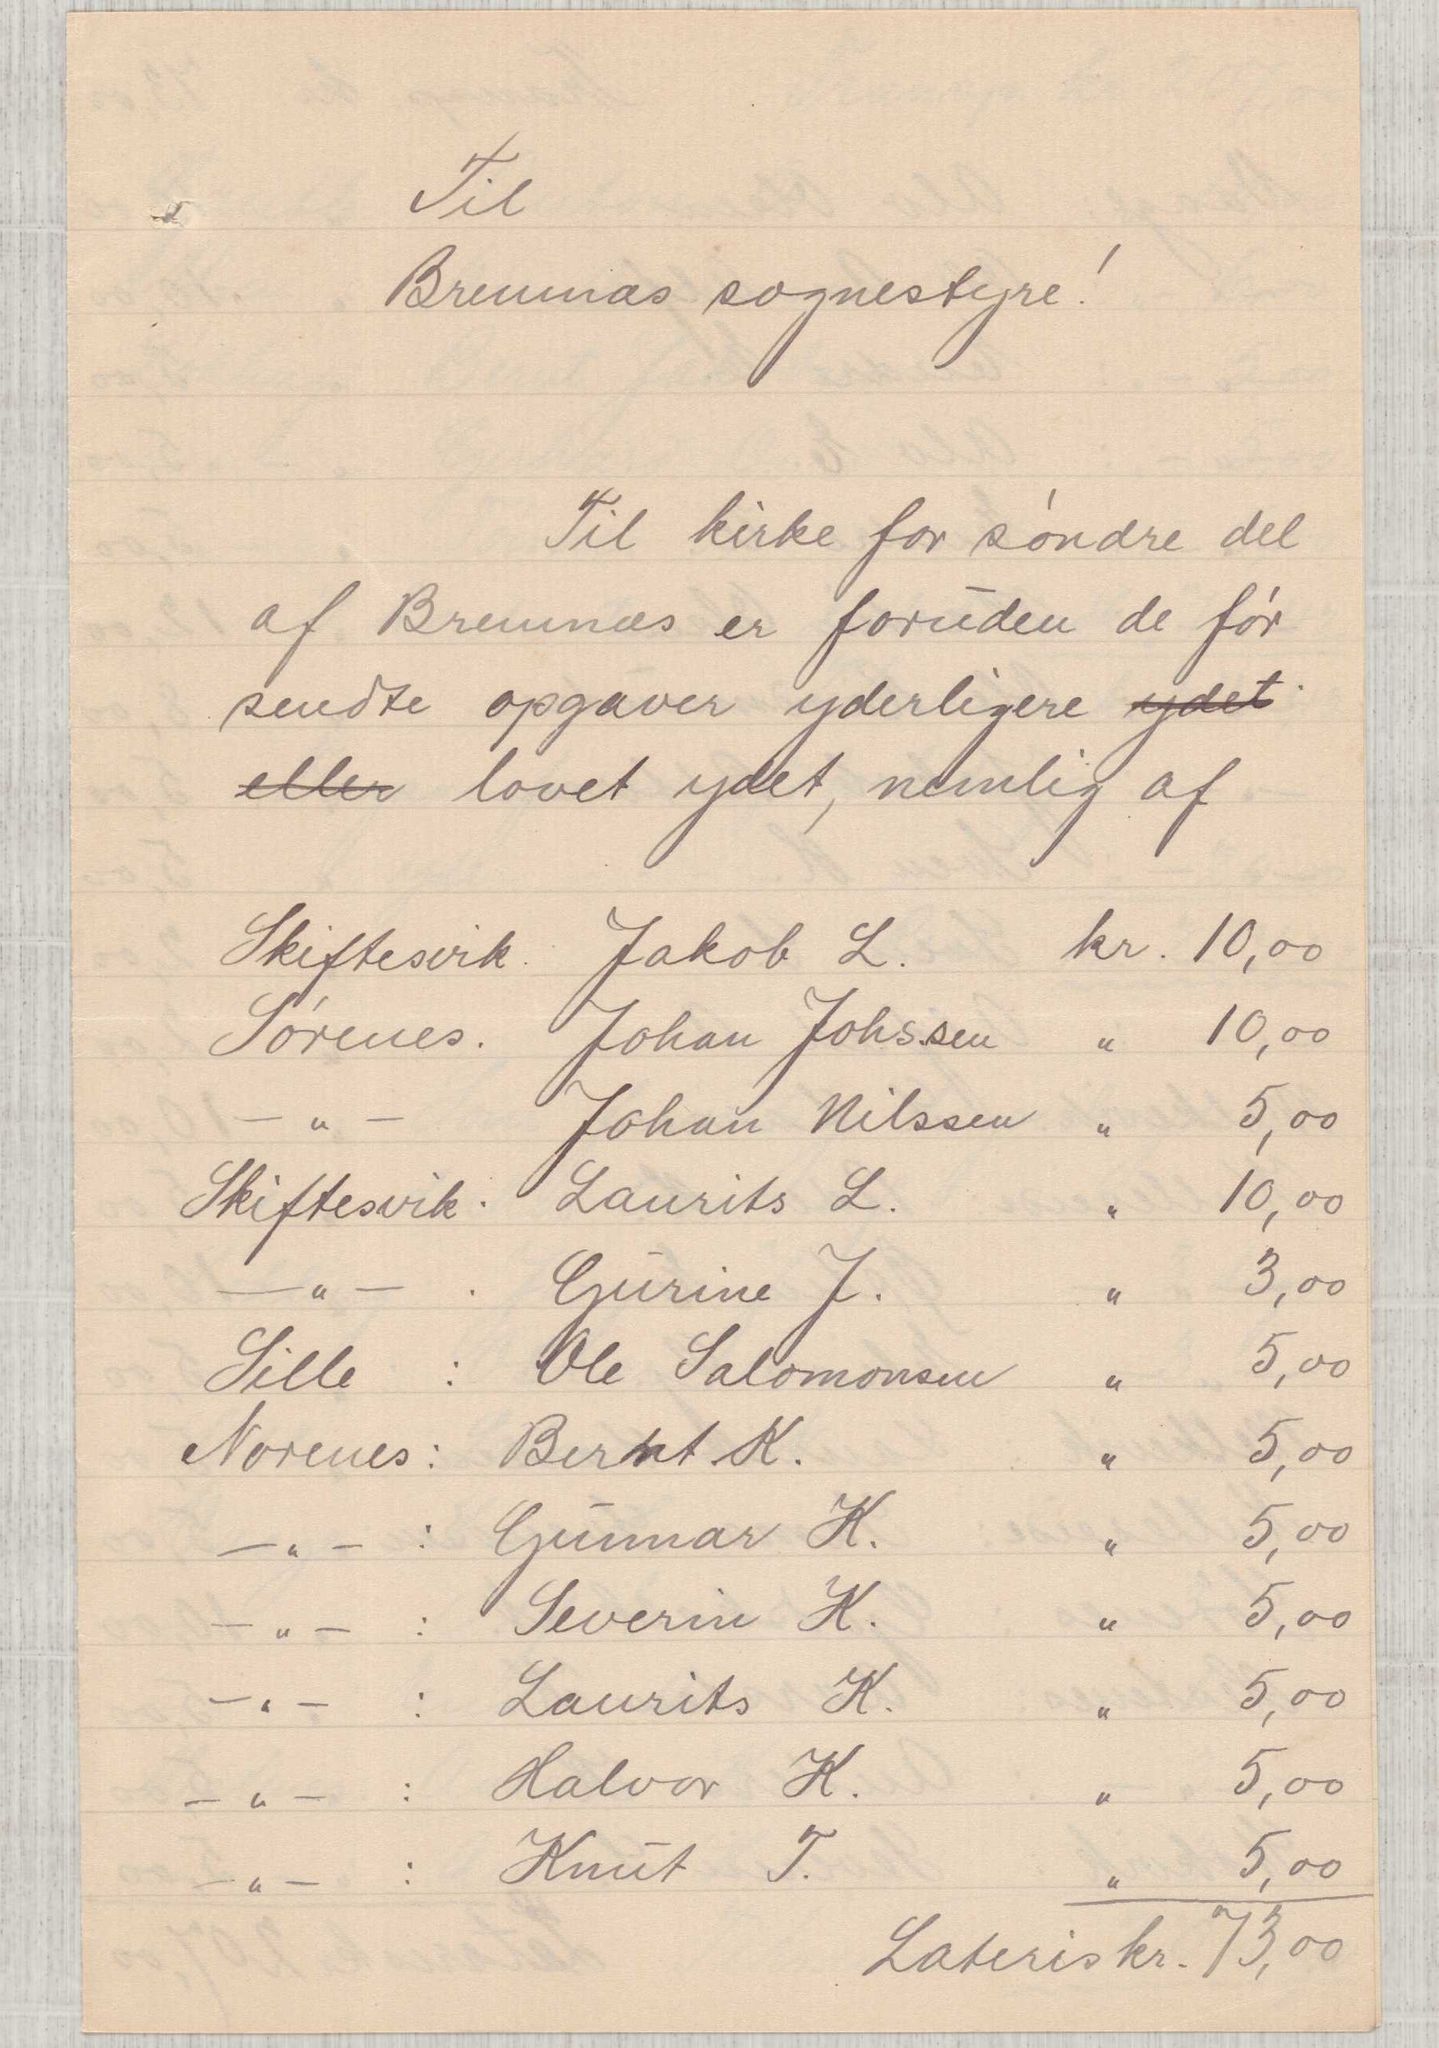 Til
Bremnæs sognestyre!
Til kirke for søndre del
af Bremnæs er foruden de før
sendte opgaver yderligere ydet
eller lovet ydet, nemlig af
Skiftesvik. Jakob L. kr. 10,00
Sørenes. Johan Johssen " 10,00
— " — Johan Nilssen " 5,00
Skiftesvik. Laurits L. " 10,00
— " — . Gurine J. " 3,00
Sille : Ole Salomonsen " 5,00
Norenes: Bernt K. " 5,00
— " — : Gunnar K. " 5,00
— " — : Severin K. " 5,00
— " — : Laurits K. " 5,00
— " — : Halvor K. " 5,00
— " — : Knut T. " 5,00
Lateris kr. 73,00